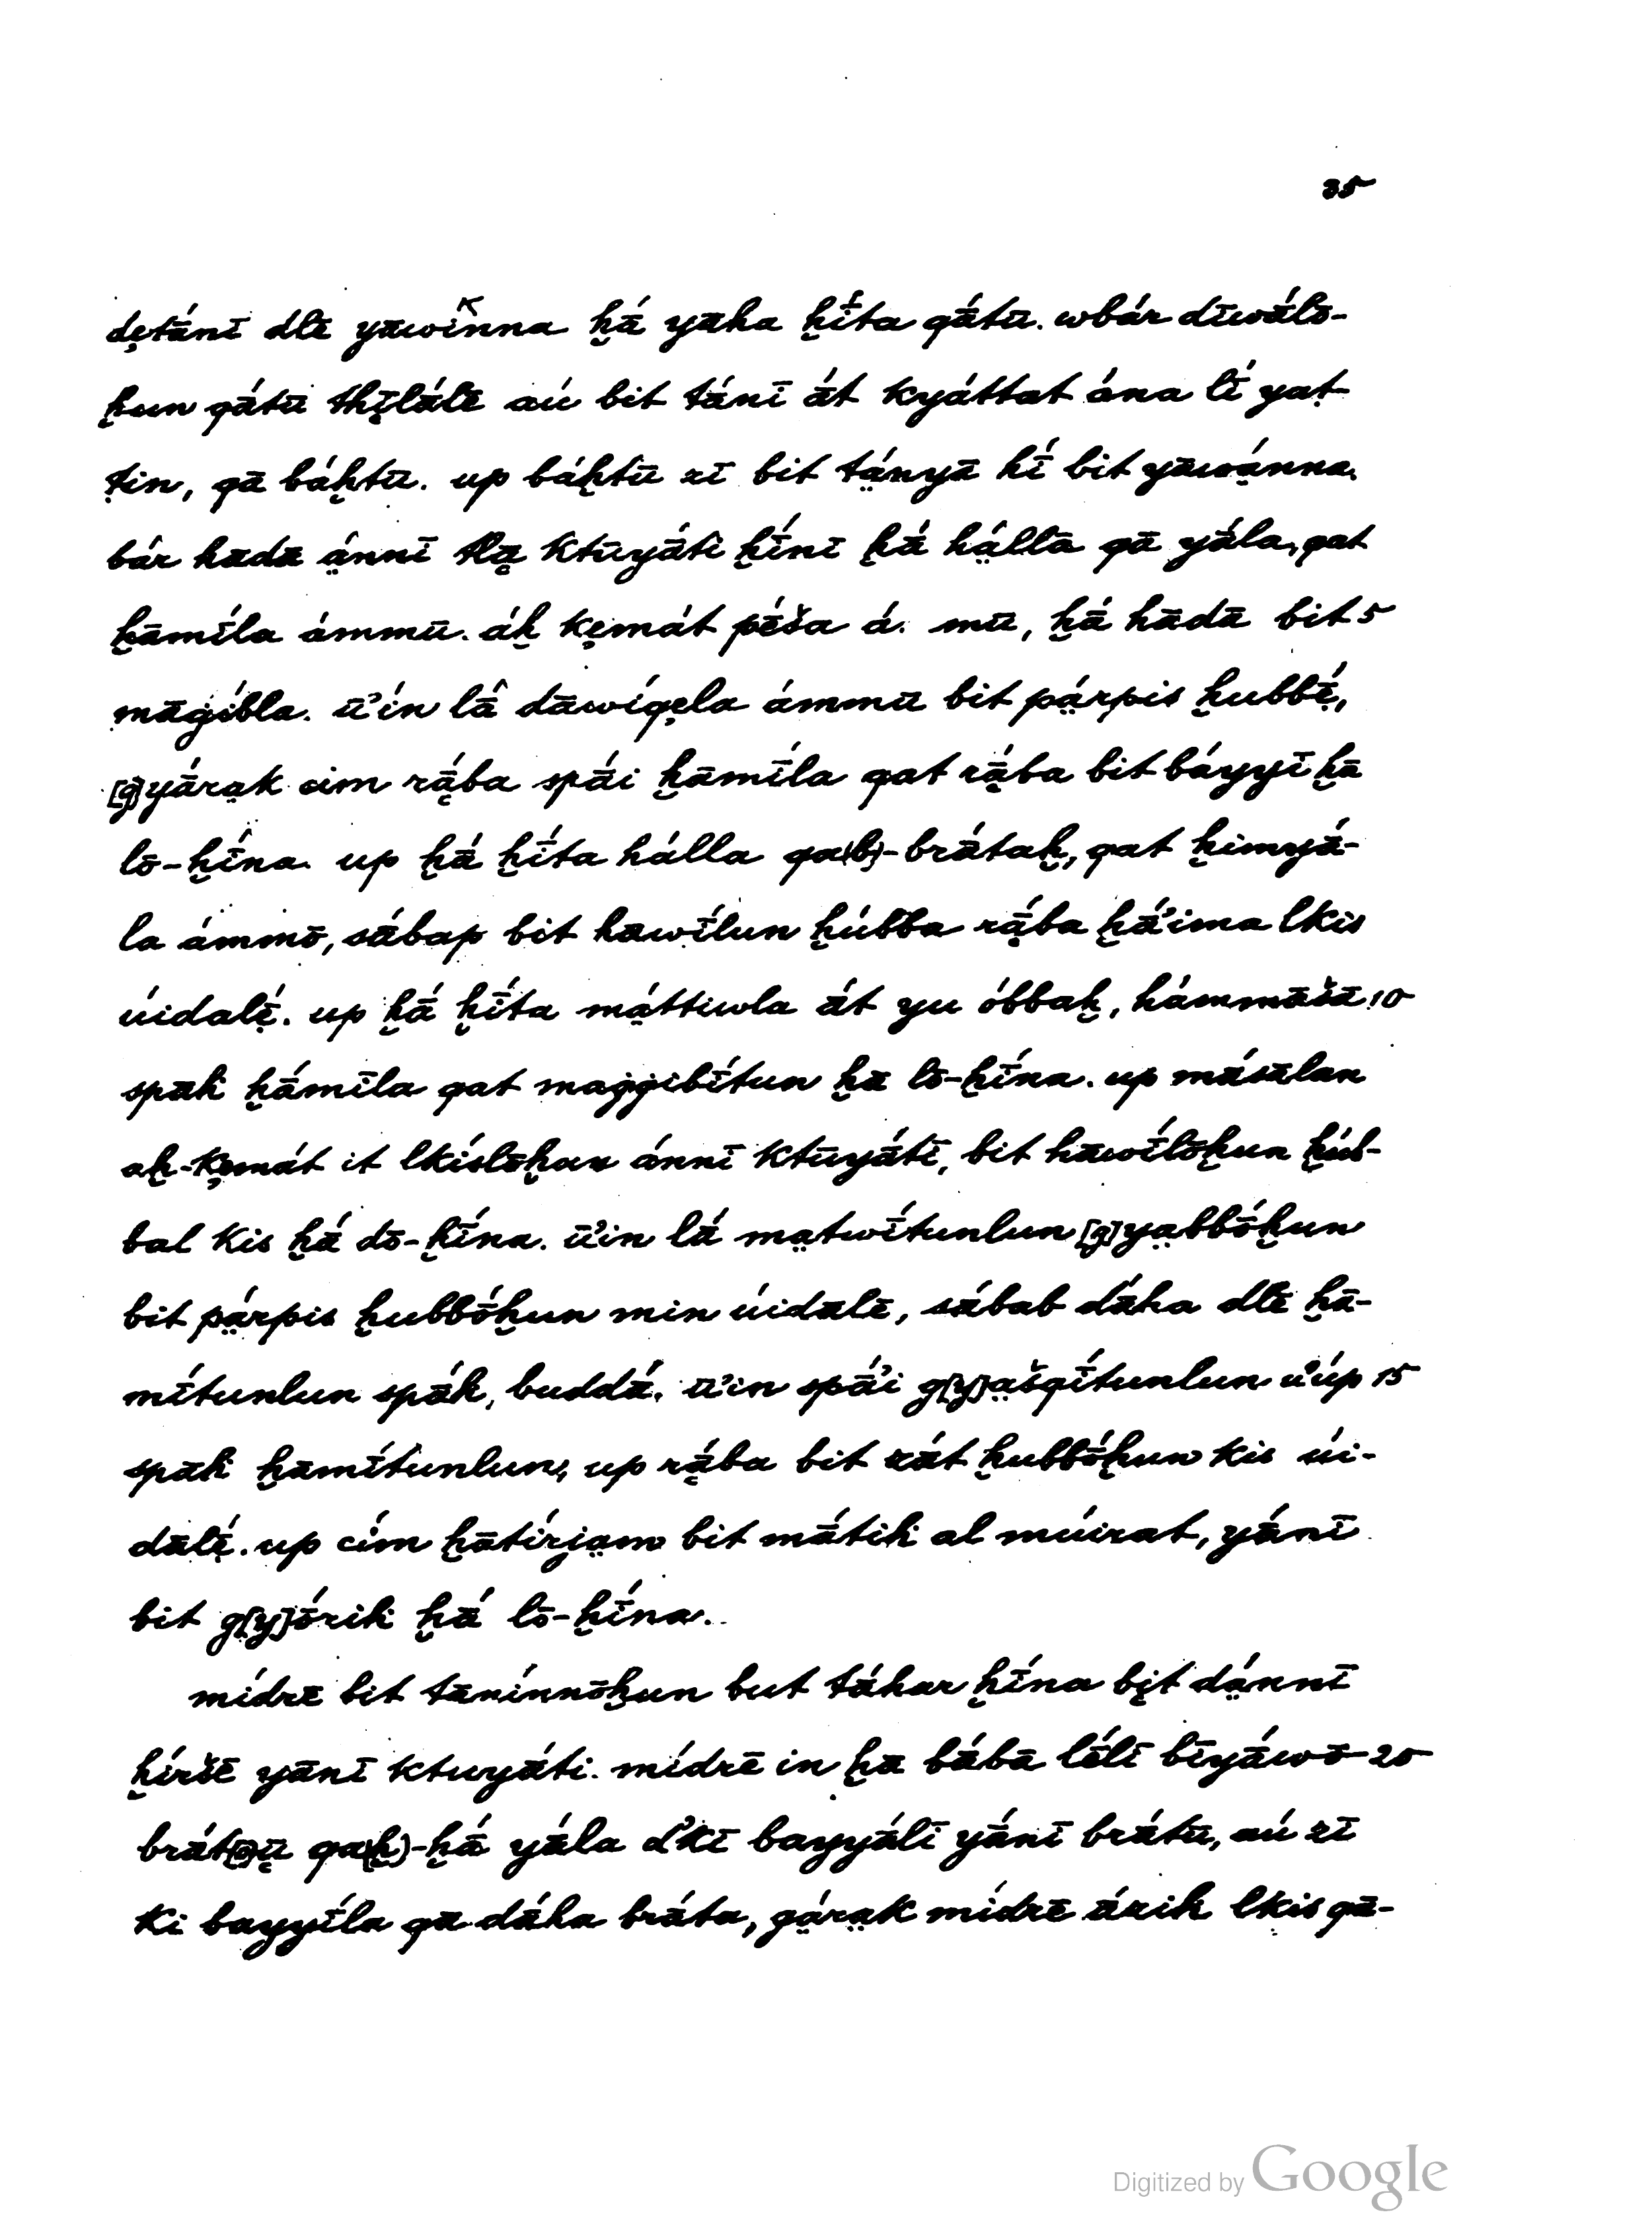 35
dẹtā́nī dlē yāwī́nna ḫā́ yāha ḫī́ta qā́tū. wbār dīwālṓ-
ḫun qā́tū thị̄lālē aú bit tā́nī ā́t kyáttat ána lī́ yaṭ-
ṭin, qā báḫtū. up báḫtū zī bit tạ́nyā hī́ bit yāwạ́nna.
bâr hādā ạ́nnī tlạ̄ ktūyā́ti ḫī́nī ḫā́ hạ́llā qā yā́la, qat
ḫāmī́la ámmū. áḫ kẹmát pḗša á. mū, ḫā́ hādā bit 5
māġíbla. ū'ín lâ dāwíqẹla ámmū bit pạ́rpis ḫubbḗ,
[g]yā́rạk cim rạ̄́ba spā́i ḫāmī́la qat rạ̄́ba bit báyyī ḫā
lō-ḫī́na. up ḫā́ ḫī́ta hálla qa(b)-brā́taḫ, qat ḫimyā́-
la ámmō, sábap bit hāwī́lun ḫúbba rạ̄́ba ḫā́'ima lkis
úidalḗ. up ḫā́ ḫī́ta mạ́ttiwla ā́t yu óbbaḫ, hámmāšā 10
spāh ḫā́mīla qat maġġibī́tun ḫā lō-ḫī́na. up másālan
aḫ-kẹmát it lkíslōḫun ánnī ktūyā́tī, bit hāwī́lōḫun ḫúb-
bal kis ḫā́ dō-ḫī́na. ū'in lā́ mạtwī́tunlun [g]yạbbṓḫun
bit pạ́rpis ḫubbṓḫun min úidālē, sábab dā́ha dlē ḫā-
mī́tunlun spā́h, buddā́. ū'in spā́'i g[y]ạšqī́tunlun ū'úp 15
spāh ḫāmī́tunlun, up rạ̄́ba bit zā́t ḫubbṓḫun kis úi-
dālḗ. up cím ḫātírjạm bit mā́tih al múirat, yā́nī
bit g[y]ṓrih ḫā́ lō-ḫī́na.
mídrē bit tānínnōḫun but tā́har ḫī́na bịt dạ́nnī
ḫíršē yānī ktuyā́ti. mídrē in ḫā bā́bā lḗlī bīyā́wō 20
brāt(ạ)ū qa(ḫ)-ḫā́ yā́la d'kī bayyā́lī yā́nī brā́tū, aú zī
ki bayyī́la qa dā́ha brā́ta, gạ́rạk mídrē ā́zih lkis qā-
Digitized by Google